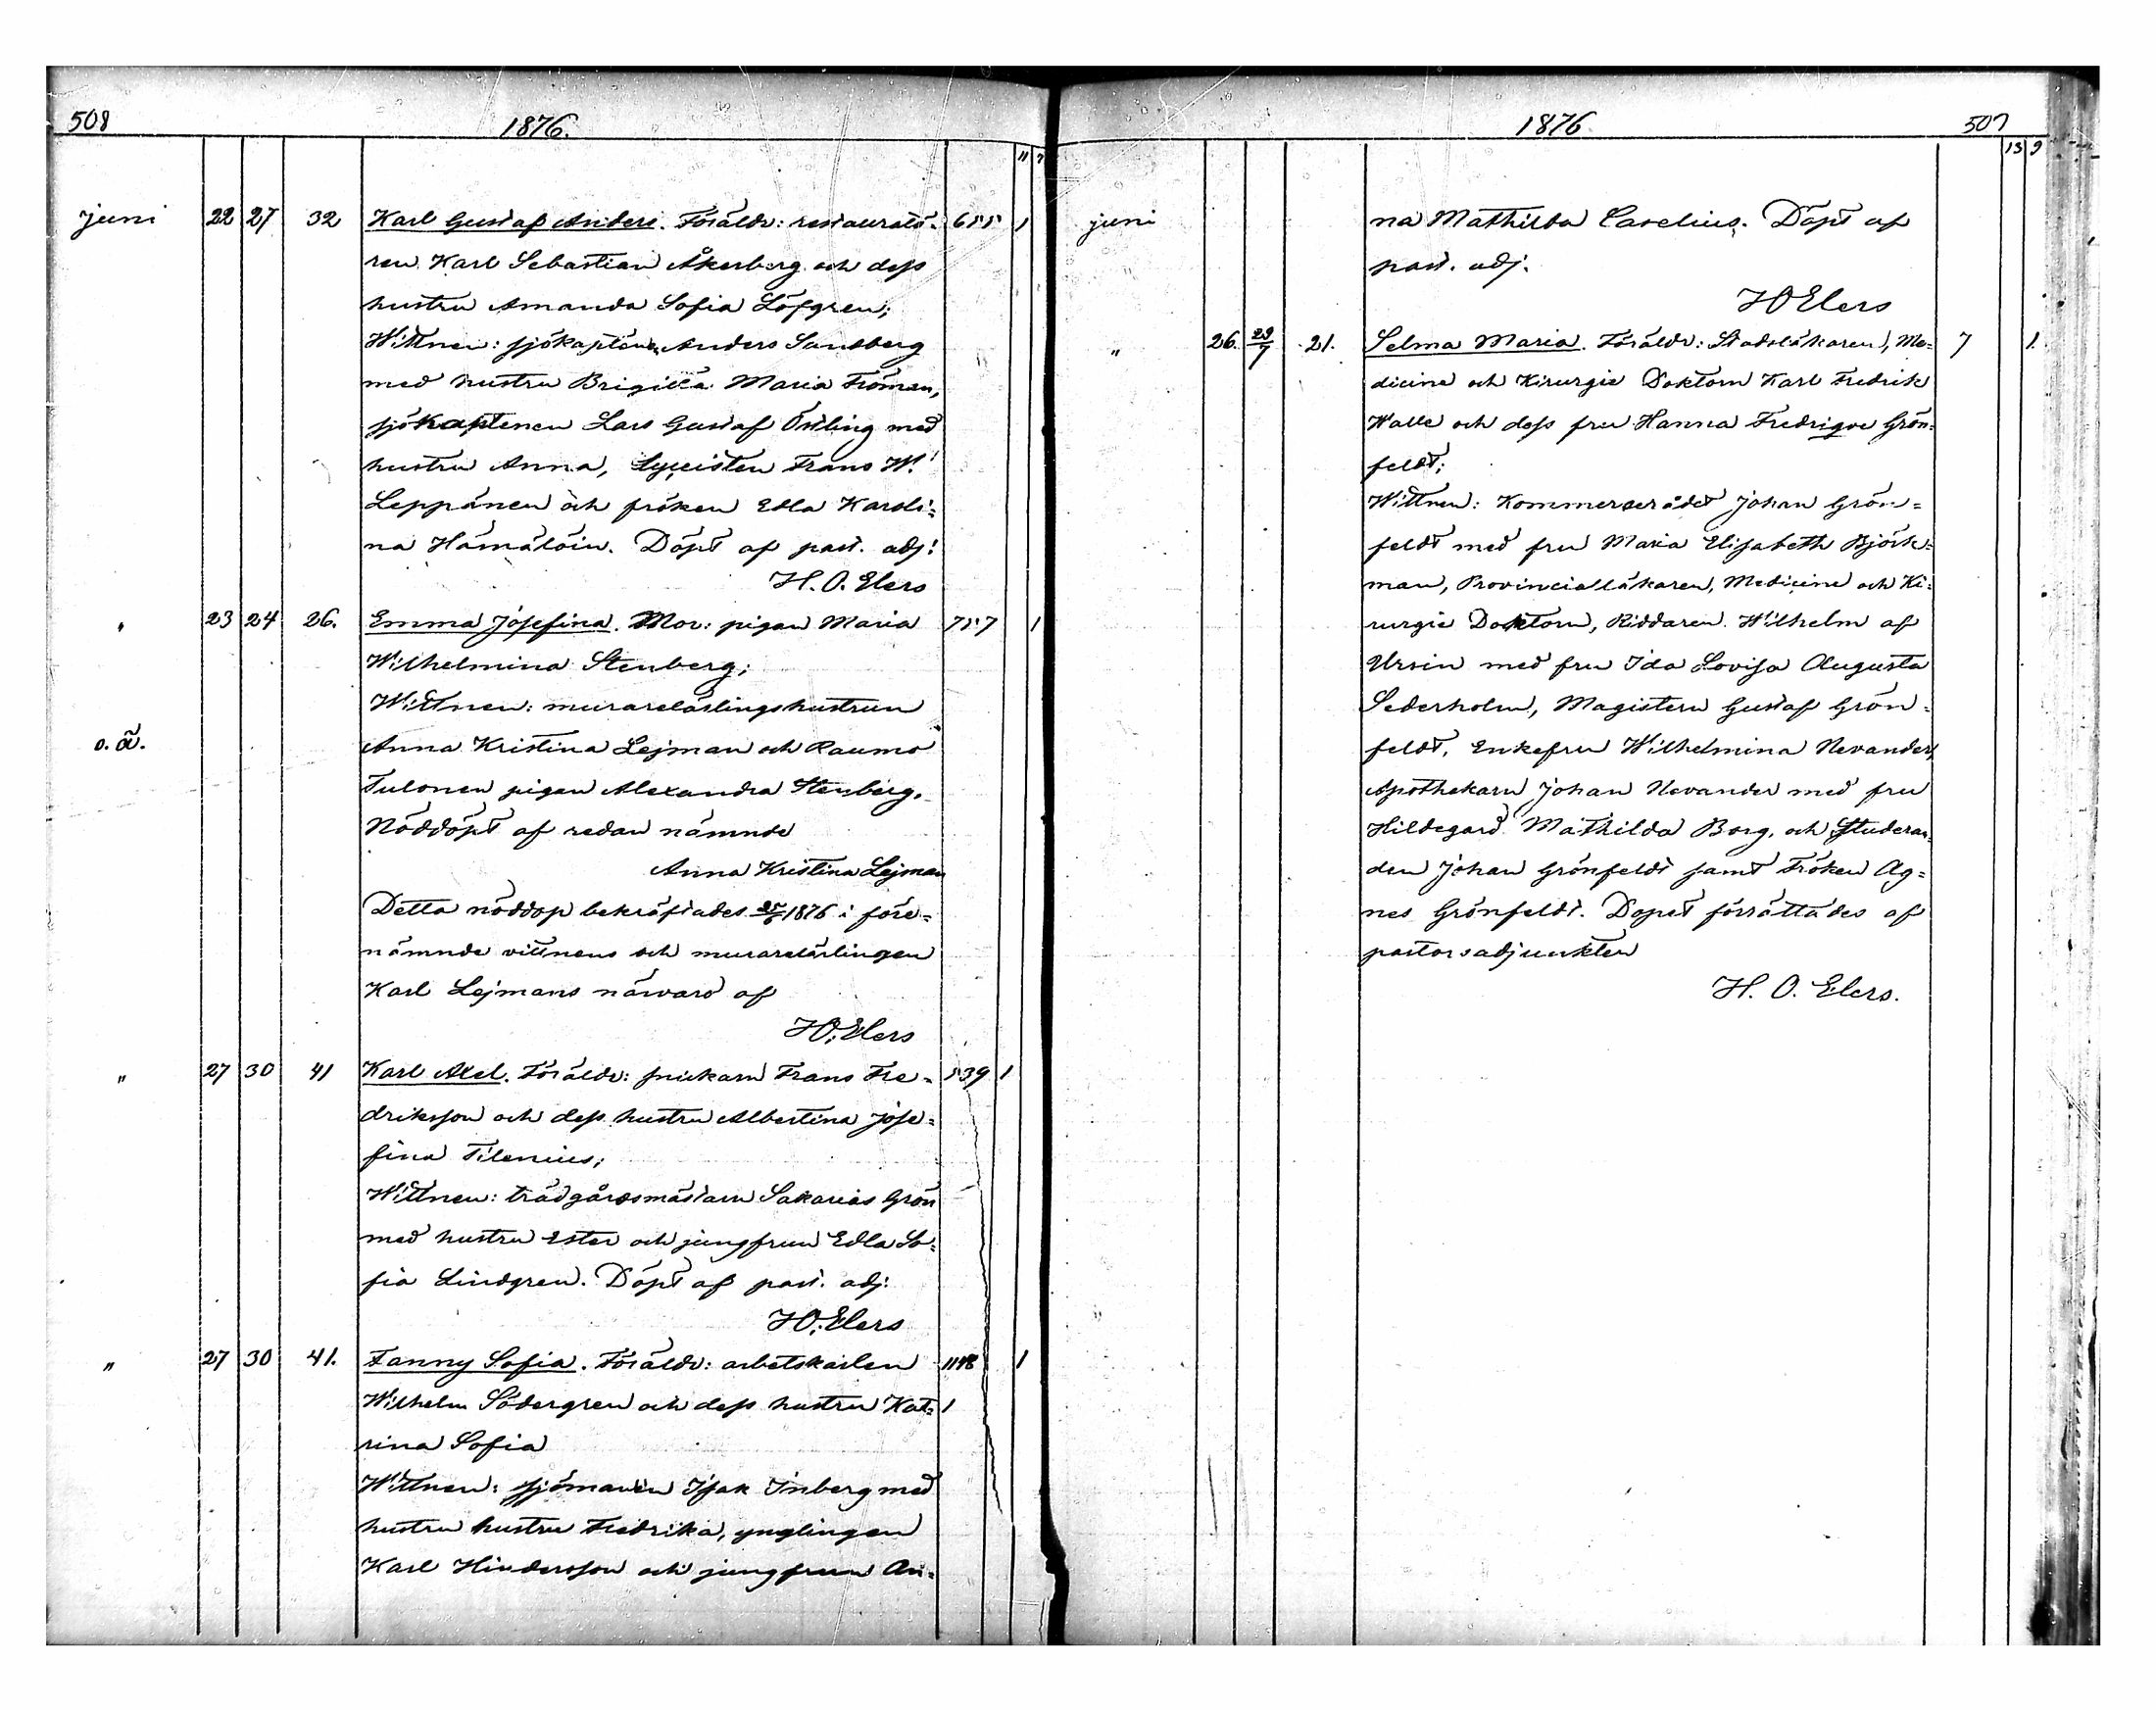 508
1876.
11 7
juni 22 27 32 Karl Gustaf Anders. Föräldr: restauratö- 655 1
ren Karl Sebastian Åkerberg och dess
hustru Amanda Sofia Löfgren;
Wittnen: sjökaptenen Anders Sandberg
med hustru Brigitta Maria Fröman,
sjökaptenen Lars Gustaf Östling med
hustru Anna, Lyceisten Frans W.
Leppänen och fröken Edla Karoli=
na Hämäläin. Döpt af past. adj:
H. O. Elers
" 23 24 26. Emma Josefina. Mor: pigan Maria 757 1
Wilhelmina Stenberg;
Wittnen: murarelärlingshustrun
o. ä. Anna Kristina Lejman och Raumo
Tulonen pigan Alexandra Stenberg.
Nöddöpt af redan nämnde
Anna Kristina Lejman
Detta nöddop bekräftades 25/6 1876 i före=
nämnde vittnens och murarelärlingen
Karl Lejmans närvaro af
HO. Elers
" 27 30 41 Karl Axel. Föräldr: Frans Fre= 539 1
driksson och dess hustru Albertina Jose=
fina Tilenius;
Wittnen: trädgårdsmästarn Sakarias Grön
med hustru Ester och jungfrun Edla So=
fia Lindgren. Döpt af past. adj:
HO. Elers
" 27 30 41. Fanny Sofia. Föräldr: arbetskarlen 1148 1
Wilhelm Södergren och dess hustru Kat= 1
rina Sofia
Wittnen: sjömannen Isak Inberg med
hustru hustru Fredrika, ynglingen
Karl Hindersson och jungfrun An=
1876
507
13 9
juni na Mathilda Carelius. Döpt af
past. adj.
HO Elers
" 26. 29/7 21. Selma Maria. Föräldr: Stadsläkaren, Me= 7 1.
dicine och Kirurgie Doktorn Karl Fredrik
Walle och dess fru Hanna Fredrique Grön=
feldt;
Wittnen: Kommerserådet Johan Grön=
feldt med fru Maria Elisabeth Björk=
man, Provincialläkaren, Medicine och Ki=
rurgie Doktorn, Riddaren Wilhelm af
Ursin med fru Ida Lovisa Augusta
Sederholm, Magistern Gustaf Grön=
feldt, Enkefru Wilhelmina Nevander,
Apothekarn Johan Nevander med fru
Hildegard Mathilda Borg, och Studeran=
den Johan Grönfeldt samt Fröken Ag=
nes Grönfeldt. Dopet förrättades af
pastorsadjunkten
H. O. Elers.